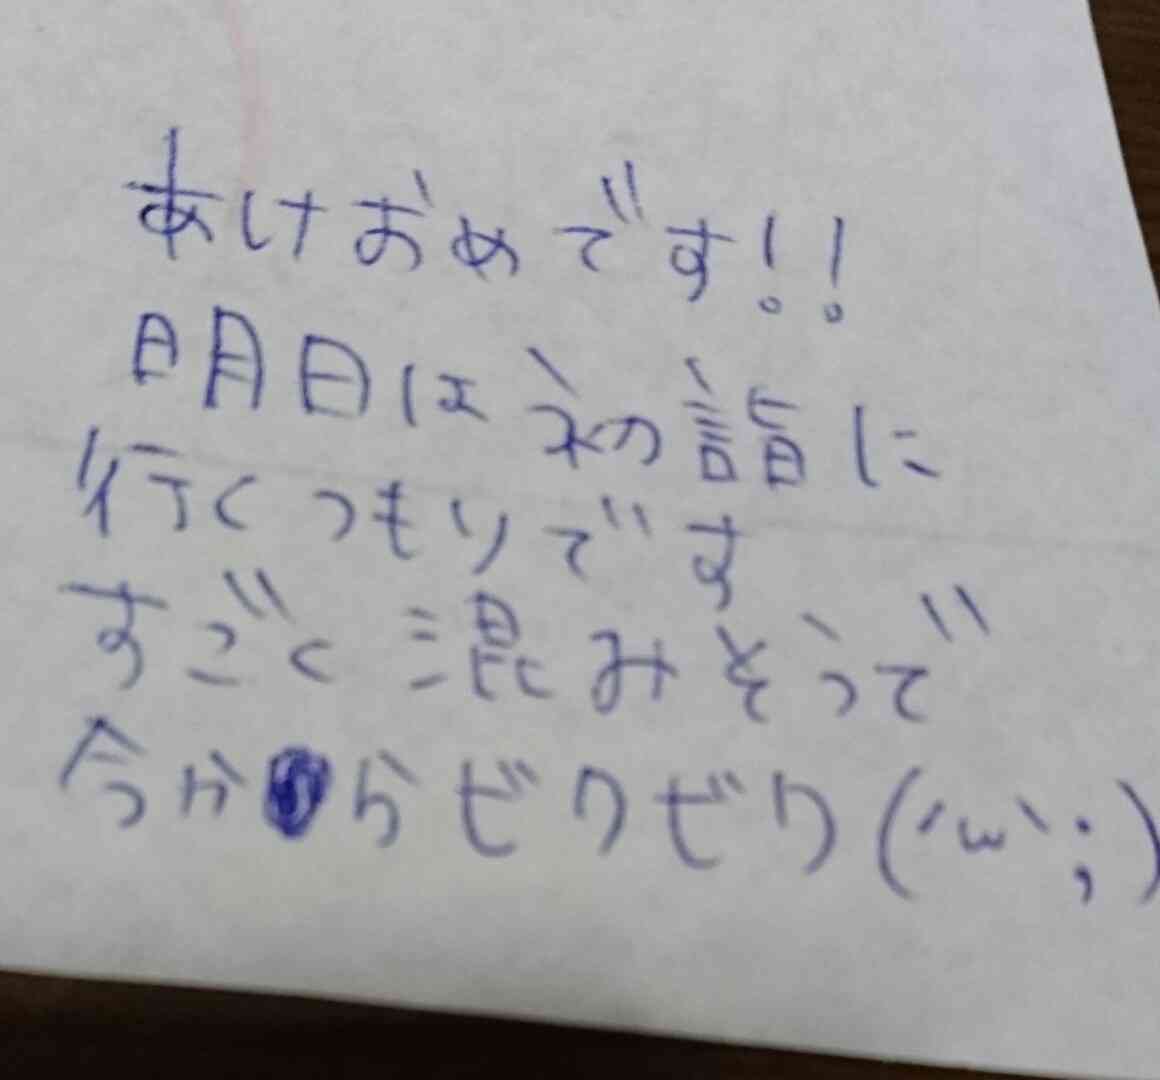 あけおめです!!
明日は初詣に
行くつもりです
すごく混みそうで
今からビクビク(´ω`;)